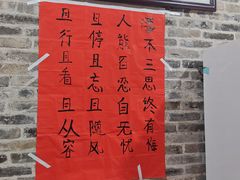 事不三思终有悔
人能百忍自无忧
且停且忘且随风
且行且看且从容